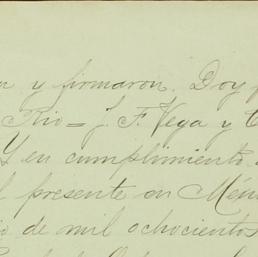 n y firmaron. Doy f
Rio = J. F. Vega y C
Y en cumplimiento
l presente en Méxi
o de mil ochocientos